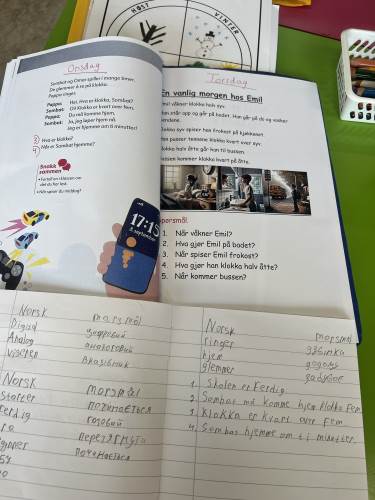 HØST
VINTER
Onsdag
Sombat og Omar spiller i mange timer.
De glemmer å se på klokka.
Pappa ringer.
Pappa: Hei. Hva er klokka, Sombat?
Sombat: Oi! Klokka er kvart over fem.
Pappa: Du må komme hjem.
Sombat: Ja, jeg løper hjem nå.
Jeg er hjemme om ti minutter!
3) Hva er klokka?
4) Når er Sombat hjemme?
Snakk
sammen
17:15
september
Torsdag
En vanlig morgen hos Emil
Emil våkner klokka halv syv.
Han står opp og går på badet. Han går på do og vasker
hendene.
Klokka syv spiser han frokost på kjøkkenet.
Han pusser tennene klokka kvart over syv.
Klokka halv åtte går han til bussen.
Bussen kommer klokka kvart på åtte.
1. Når våkner Emil?
2. Hva gjør Emil på badet?
3. Når spiser Emil frokost?
4. Hva gjør han klokka halv åtte?
5. Når kommer bussen?
Norsk morsmål
Digital цифровий
Analog аналоговий
viseren вказівник
Norsk morsmål
starter починається
ferdig готовий
починається
Norsk morsmål
ringer дзвінки
hjem додому
glemmer
1. Skolen er ferdig
2. Sombat må komme hjem klokka fem
3. Klokka er kvart over fem
4. Sombat hjemme om ti minutter.